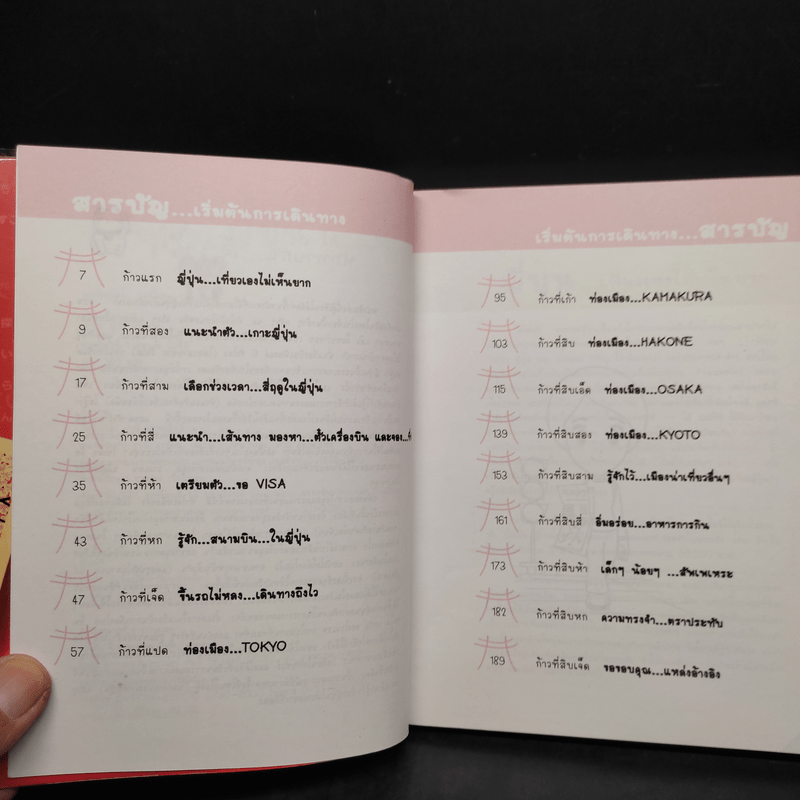 สารบัญ...เริ่มต้นการเดินทาง
7 ก้าวแรก ญี่ปุ่น...เที่ยวเองไม่เห็นยาก
9 ก้าวที่สอง แนะนำตัว...เกาะญี่ปุ่น
17 ก้าวที่สาม เลือกช่วงเวลา...สี่ฤดูในญี่ปุ่น
25 ก้าวที่สี่ แนะนำ...เส้นทาง มองหา...ตั๋วเครื่องบิน และจอง...ที่
35 ก้าวที่ห้า เตรียมตัว...ขอ VISA
43 ก้าวที่หก รู้จัก...สนามบิน...ในญี่ปุ่น
47 ก้าวที่เจ็ด ขึ้นรถไม่หลง...เดินทางถึงไว
57 ก้าวที่แปด ท่องเมือง...TOKYO
เริ่มต้นการเดินทาง...สารบัญ
95 ก้าวที่เก้า ท่องเมือง...KAMAKURA
103 ก้าวที่สิบ ท่องเมือง...HAKONE
115 ก้าวที่สิบเอ็ด ท่องเมือง...OSAKA
139 ก้าวที่สิบสอง ท่องเมือง...KYOTO
153 ก้าวที่สิบสาม รู้จักไว้...เมืองน่าเที่ยวอื่นๆ
161 ก้าวที่สิบสี่ อิ่มอร่อย...อาหารการกิน
173 ก้าวที่สิบห้า เล็กๆ น้อยๆ ...สัพเพเหระ
182 ก้าวที่สิบหก ความทรงจำ...ตราประทับ
189 ก้าวที่สิบเจ็ด ขอขอบคุณ...แหล่งอ้างอิง